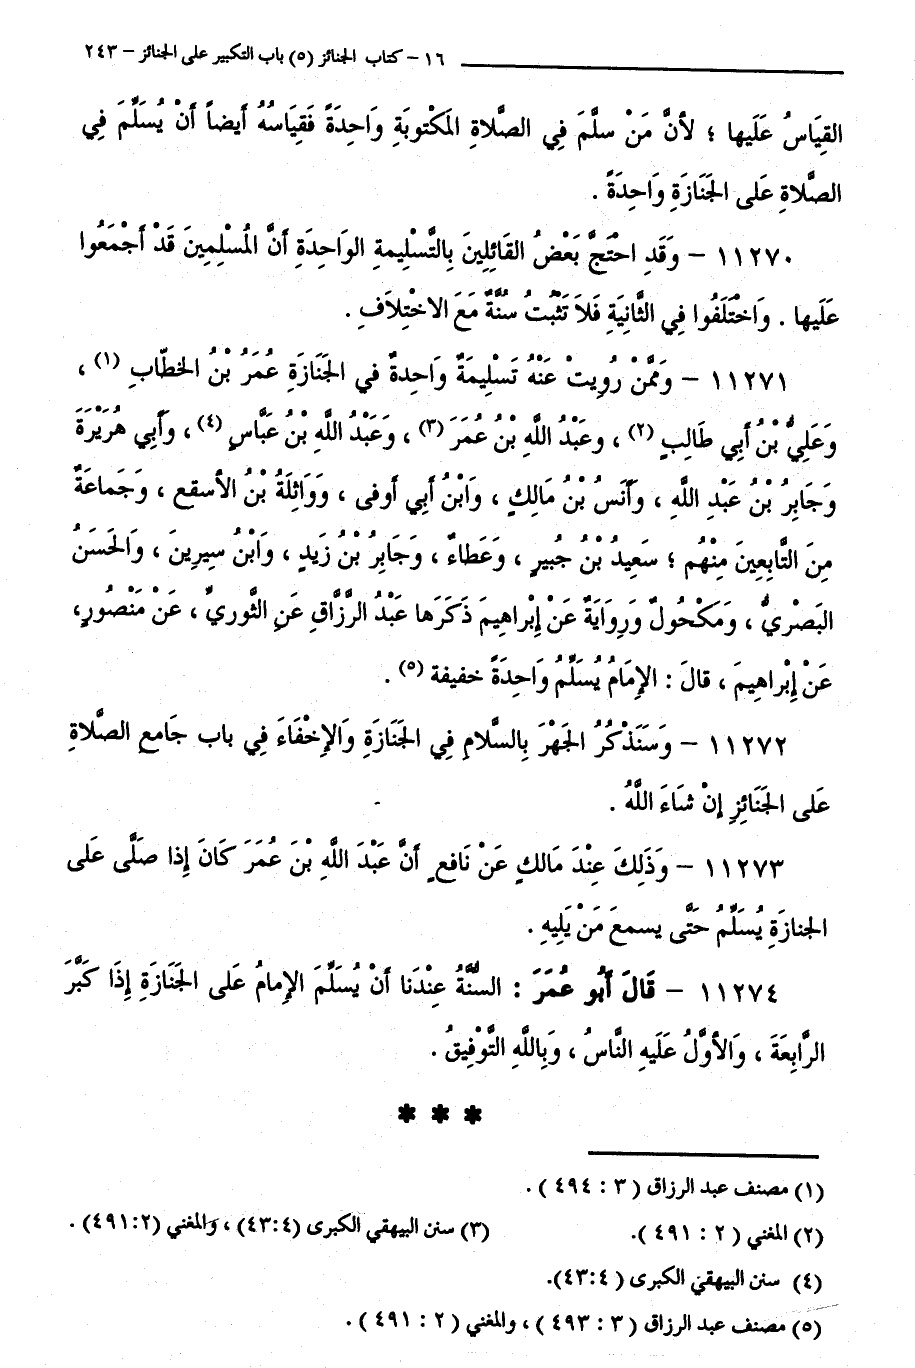 ١٦ – كتاب الجنائز (٥) باب التكبير على الجنائز – ٢٤٣
القِيَاسُ عَلَيها ؛ لأنَّ مَنْ سلَّمَ فِي الصَّلاةِ المَكْتوبَةِ وَاحِدَةً فَقِيَاسُهُ أيضاً أنْ يُسَلِّمَ فِي
الصَّلاةِ عَلى الجَنَازَةِ وَاحِدَةً .
١١٢٧٠ – وَقَدِ احْتَجَّ بَعْضُ القَائِلِينَ بِالتَّسْلِيمةِ الوَاحِدَةِ أنَّ المُسْلِمِينَ قَدْ أجْمَعُوا
عَلَيها . وَاخْتَلَفُوا فِي الثَّانِيَةِ فَلاَ تَثْبُتُ سُنَّةٌ مَعَ الاخْتِلاَفِ .
١١٢٧١ – وَمِمَّنْ رُوِيتْ عَنْهُ تَسْلِيمَةٌ وَاحِدةٌ في الجَنَازَةِ عُمَرُ بْنُ الخطَّابِ (١) ،
وَعَلِيُّ بْنُ أبِي طَالِبٍ (٢) ، وعَبْدُ اللَّهِ بْنُ عُمَرَ (٣) ، وَعَبْدُ اللَّهِ بْنُ عَبَّاسٍ (٤) ، وَأبِي هُرَيْرَةَ
وَجَابِرُ بْنُ عَبْدِ اللَّهِ ، وَأنَسُ بْنُ مَالِكٍ ، وَابْنُ أبي أوفى ، وَوَاثِلَةُ بْنُ الأسقع ، وَجَماعَةٌ
مِنَ التَّابِعِينَ مِنْهُم ؛ سَعِيدُ بْنُ جُبيرٍ ، وَعَطاءٌ ، وَجَابِرُ بْنُ زَيدٍ ، وَابْنُ سِيرِينَ ، وَالحَسَنُ
البَصْريُّ ، وَمَكْحُولٌ وَرِوَايَةٌ عَنْ إِبْراهِيمَ ذَكَرَها عَبْدُ الرَّزَّاقِ عَنِ الثَّوريِّ ، عَنْ مَنْصُورٍ،
عَنْ إِبْراهِيمَ ، قالَ : الإِمَامُ يُسَلِّمُ وَاحِدَةً خفيفة (٥) .
١١٢٧٢ – وَسَنَذْكُرُ الجَهْرَ بِالسَّلامِ فِي الجَنَازَةِ وَالإِخْفَاءَ فِي باب جَامع الصَّلاةِ
عَلى الجَنَائِزِ إنْ شاءَ اللَّهُ .
١١٢٧٣ – وَذَلِكَ عِنْدَ مَالكٍ عَنْ نَافعٍ أنَّ عَبْدَ اللَّهِ بْنَ عُمَرَ كَانَ إذا صَلَّى عَلى
الجنازَةِ يُسَلِّمُ حَتَّى يسمعَ مَنْ يَلِيهِ .
١١٢٧٤ – قَالَ أبُو عُمَرَ : السُّنَّةُ عِنْدَنا أنْ يُسَلِّمَ الإمامُ عَلى الجَنَازَةِ إِذَا كَبَّرَ
الرَّابِعَةَ ، وَالأوَّلُ عَلَيهِ النَّاسُ ، وَبِاللَّهِ التَّوْفِيقُ .
* * *
(١) مصنف عبد الرزاق ( ٣ : ٤٩٤ ) .
(٢) المغني ( ٢ : ٤٩١ ). (٣) سنن البيهقي الكبرى (٤٣:٤) ، والمغني (٤٩١:٢) .
(٤) سنن البيهقي الكبرى ( ٤٣:٤).
(٥) مصنف عبد الرزاق ( ٣ : ٤٩٣ ) ، والمغني ( ٢ : ٤٩١ ) .